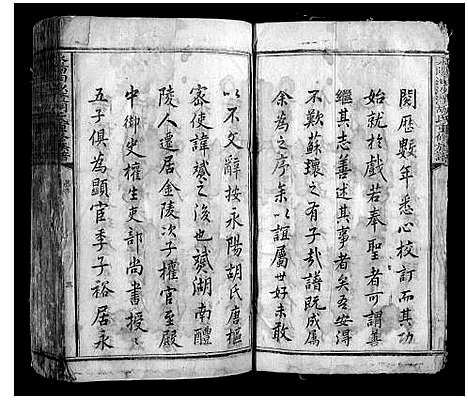 閱歷數年悉心校訂而其功
始就於戲若奉聖者可謂善
繼其志善述其事者矣吾安得
不歎蘇瓌之有子哉譜既成屬
余為之序余以誼屬世好未敢
以不文辭按永陽胡氏唐樞
密使諱贇之後也贇湖南醴
陵人遷居金陵次子權官至殿
中御史權生吏部尚書授
五子俱為顯宦季子裕居永